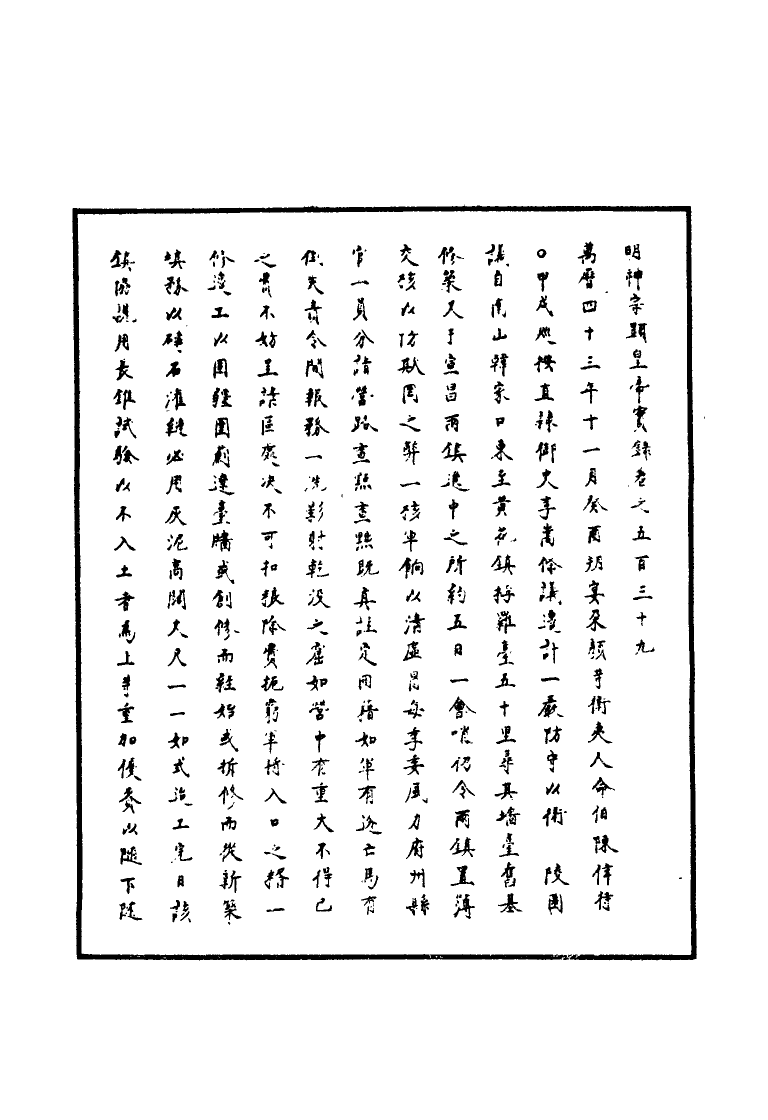 明神宗顯皇帝實錄卷之五百三十九
萬曆四十三年十一月癸酉朔宴朵顏等衛夷人命伯陳偉待
○甲戌巡按直隸御史李嵩條議邊計一嚴防守以衛　陵園
議自虎山韓家口東至黃花鎮擦羅臺五十里尋其墻臺舊基
修築又于宣昌兩鎮適中之所約五日一會哨仍令兩鎮置簿
交核以防欺罔之弊一核軍餉以清虛冒每季委風力府州縣
官一員分詣營路查點查點既真註定冊籍如軍有逃亡馬有
倒失責令開報務一洗影射乾沒之窟如營中有重大不得已
之費不妨呈請區處決不可扣賬除費扼窮軍待入口之糈一
修邊工以固疆圉薊邊臺牆或創修而經始或拆修而從新築
填務以磚石灌縫必用灰泥高闊丈尺一一如式造工完日該
鎮協誂用長錐試驗以不入土者爲上等重加優賚以隨下隨